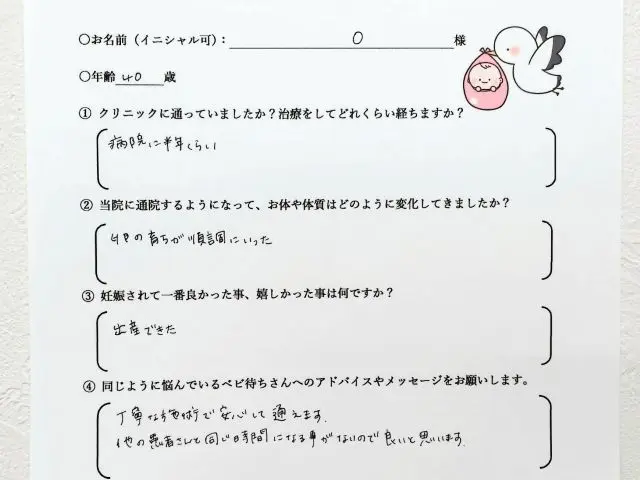 ○お名前（イニシャル可）： O 様
○年齢 40 歳
① クリニックに通っていましたか？治療をしてどれくらい経ちますか？
病院に半年くらい
② 当院に通院するようになって、お体や体質はどのように変化してきましたか？
卵の育ちが順調にいった
③ 妊娠されて一番良かった事、嬉しかった事は何ですか？
出産できた
④ 同じように悩んでいるベビ待ちさんへのアドバイスやメッセージをお願いします。
丁寧な施術で安心して通えます.
他の患者さんと同じ時間になる事がないので良いと思います.